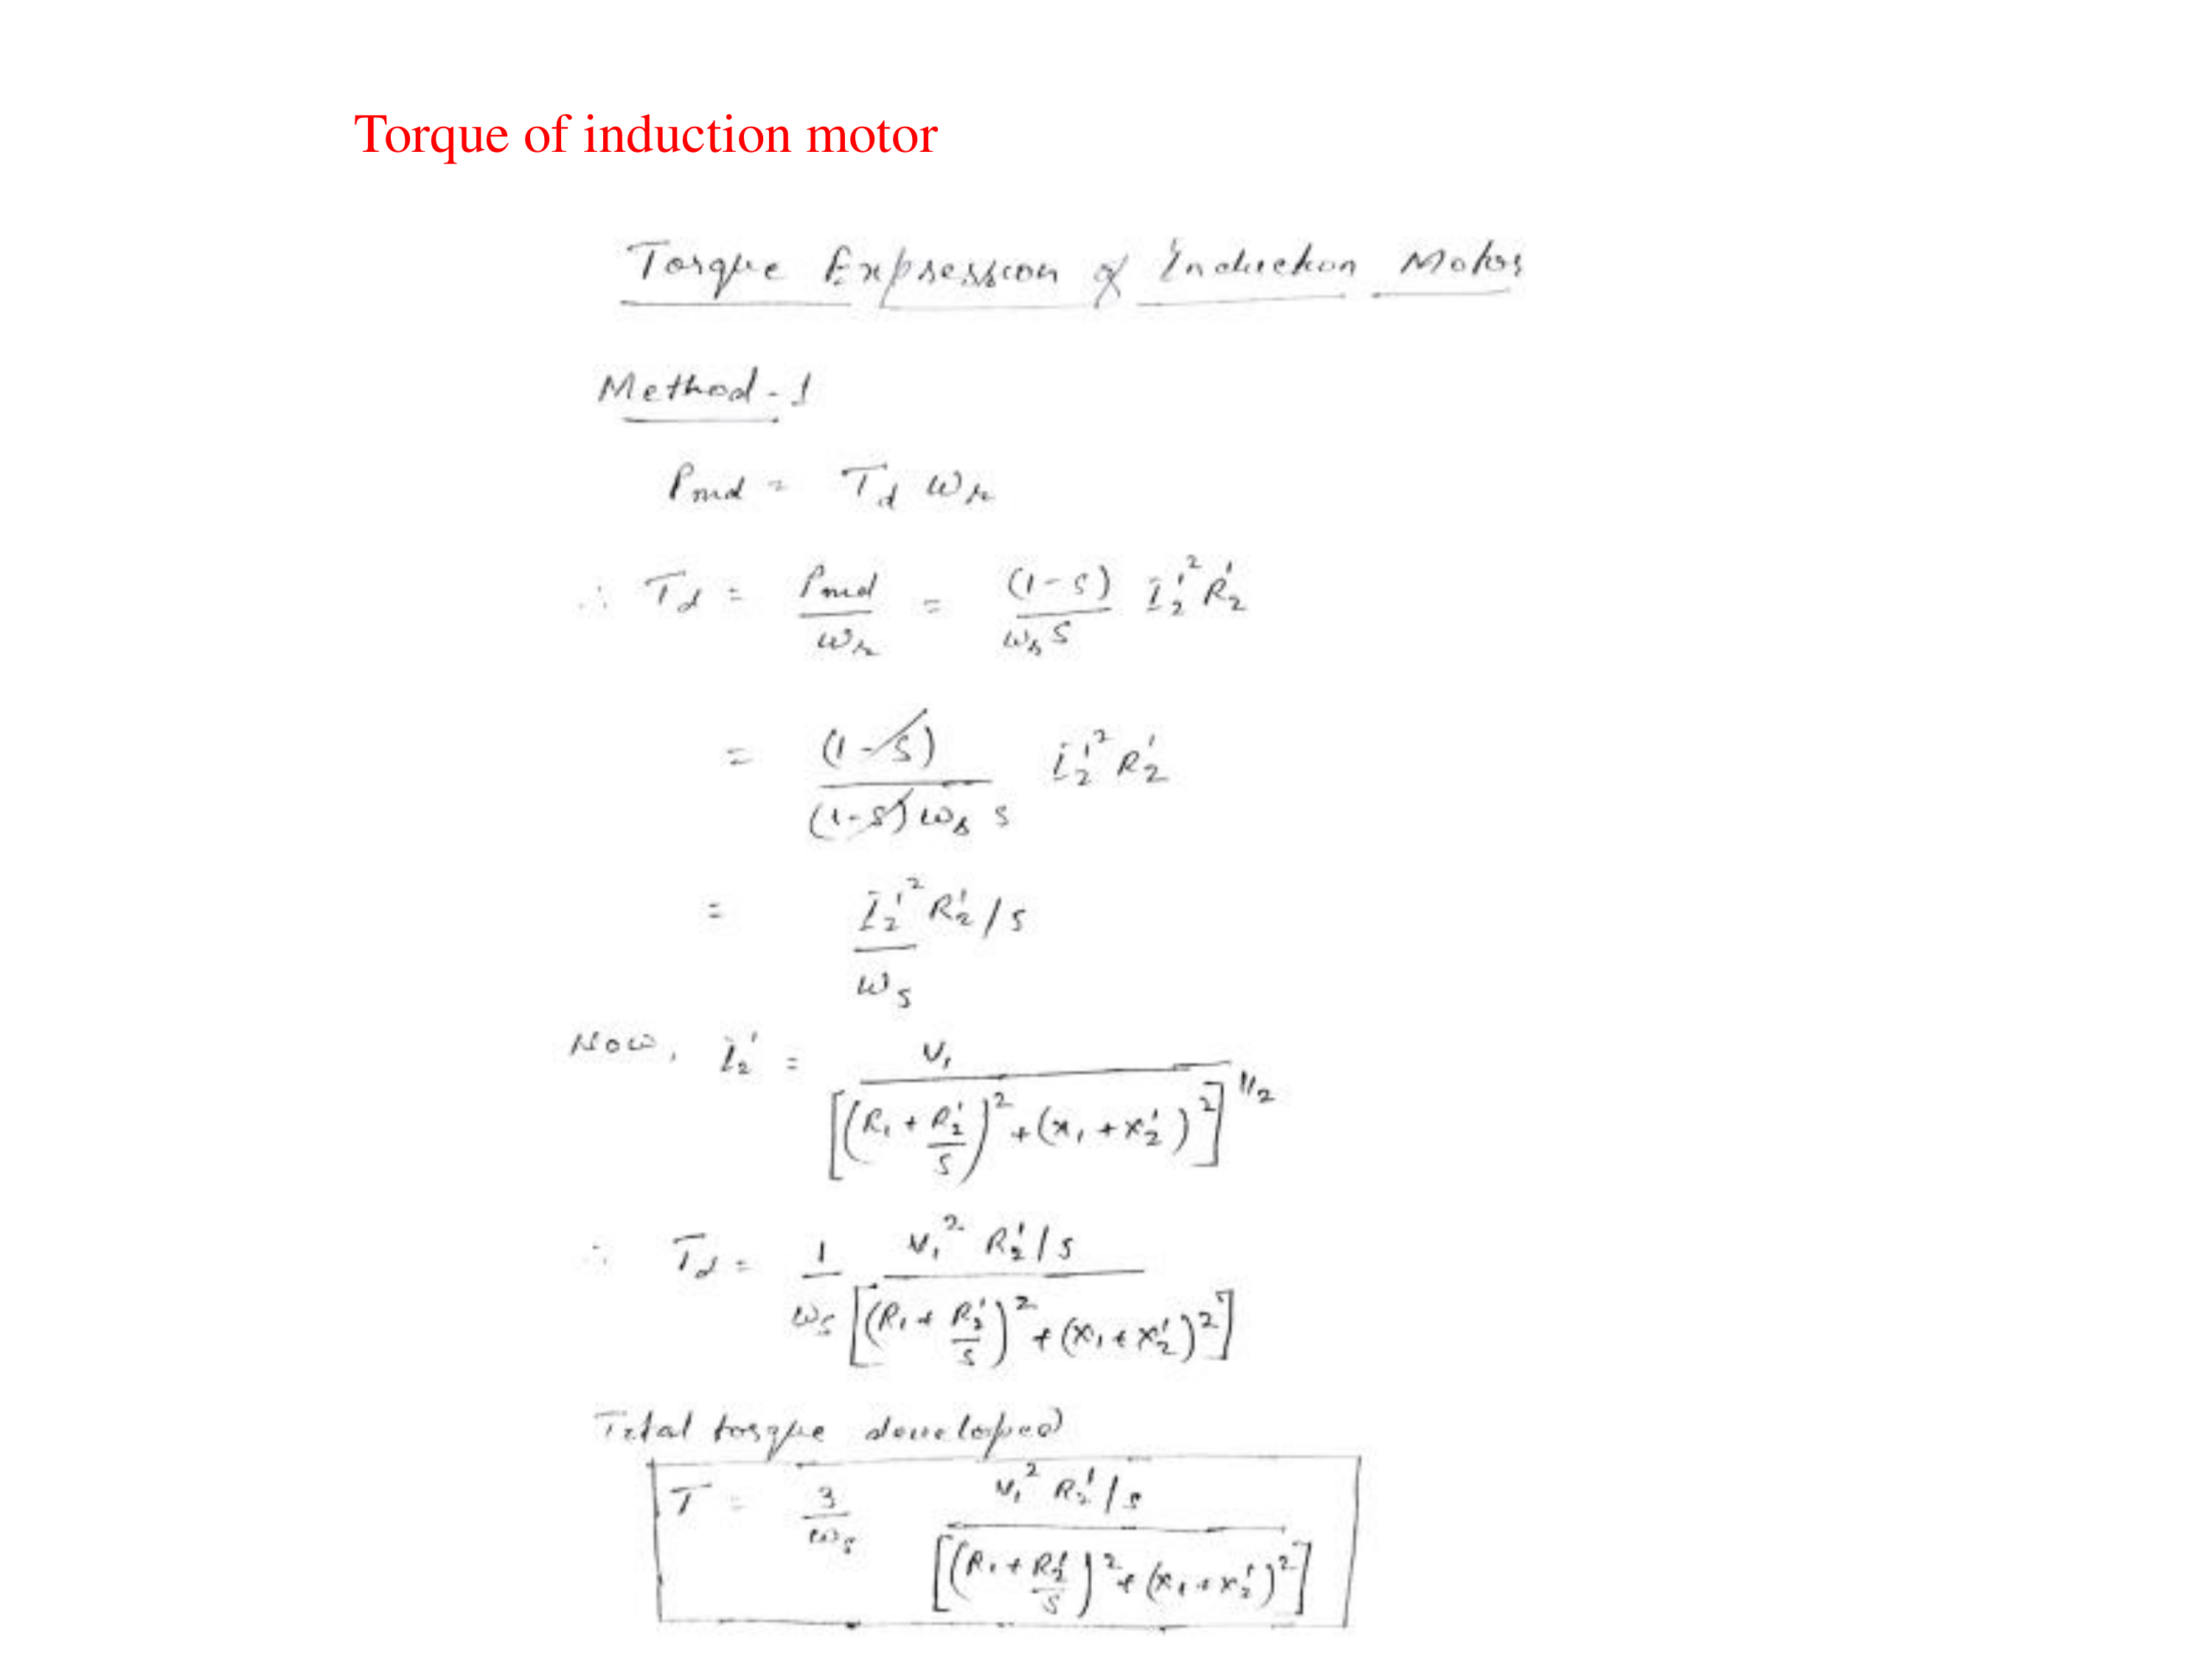 Torque of induction motor
Torque Expression of Induction Motor
Method-1
Pmd = Td ωr
∴ Td = Pmd/ωr = (1-s)/(ωs s) I2'² R2'
= (1-s)/((1-s)ωs s) I2'² R2'
= I2'² R2'/s / ωs
Now, I2' = V1 / [(R1 + R2'/s)² + (x1 + x2')²]^1/2
∴ Td = 1/ωs V1² R2'/s / [(R1 + R2'/s)² + (x1 + x2')²]
Total torque developed
T = 3/ωs V1² R2'/s / [(R1 + R2'/s)² + (x1 + x2')²]